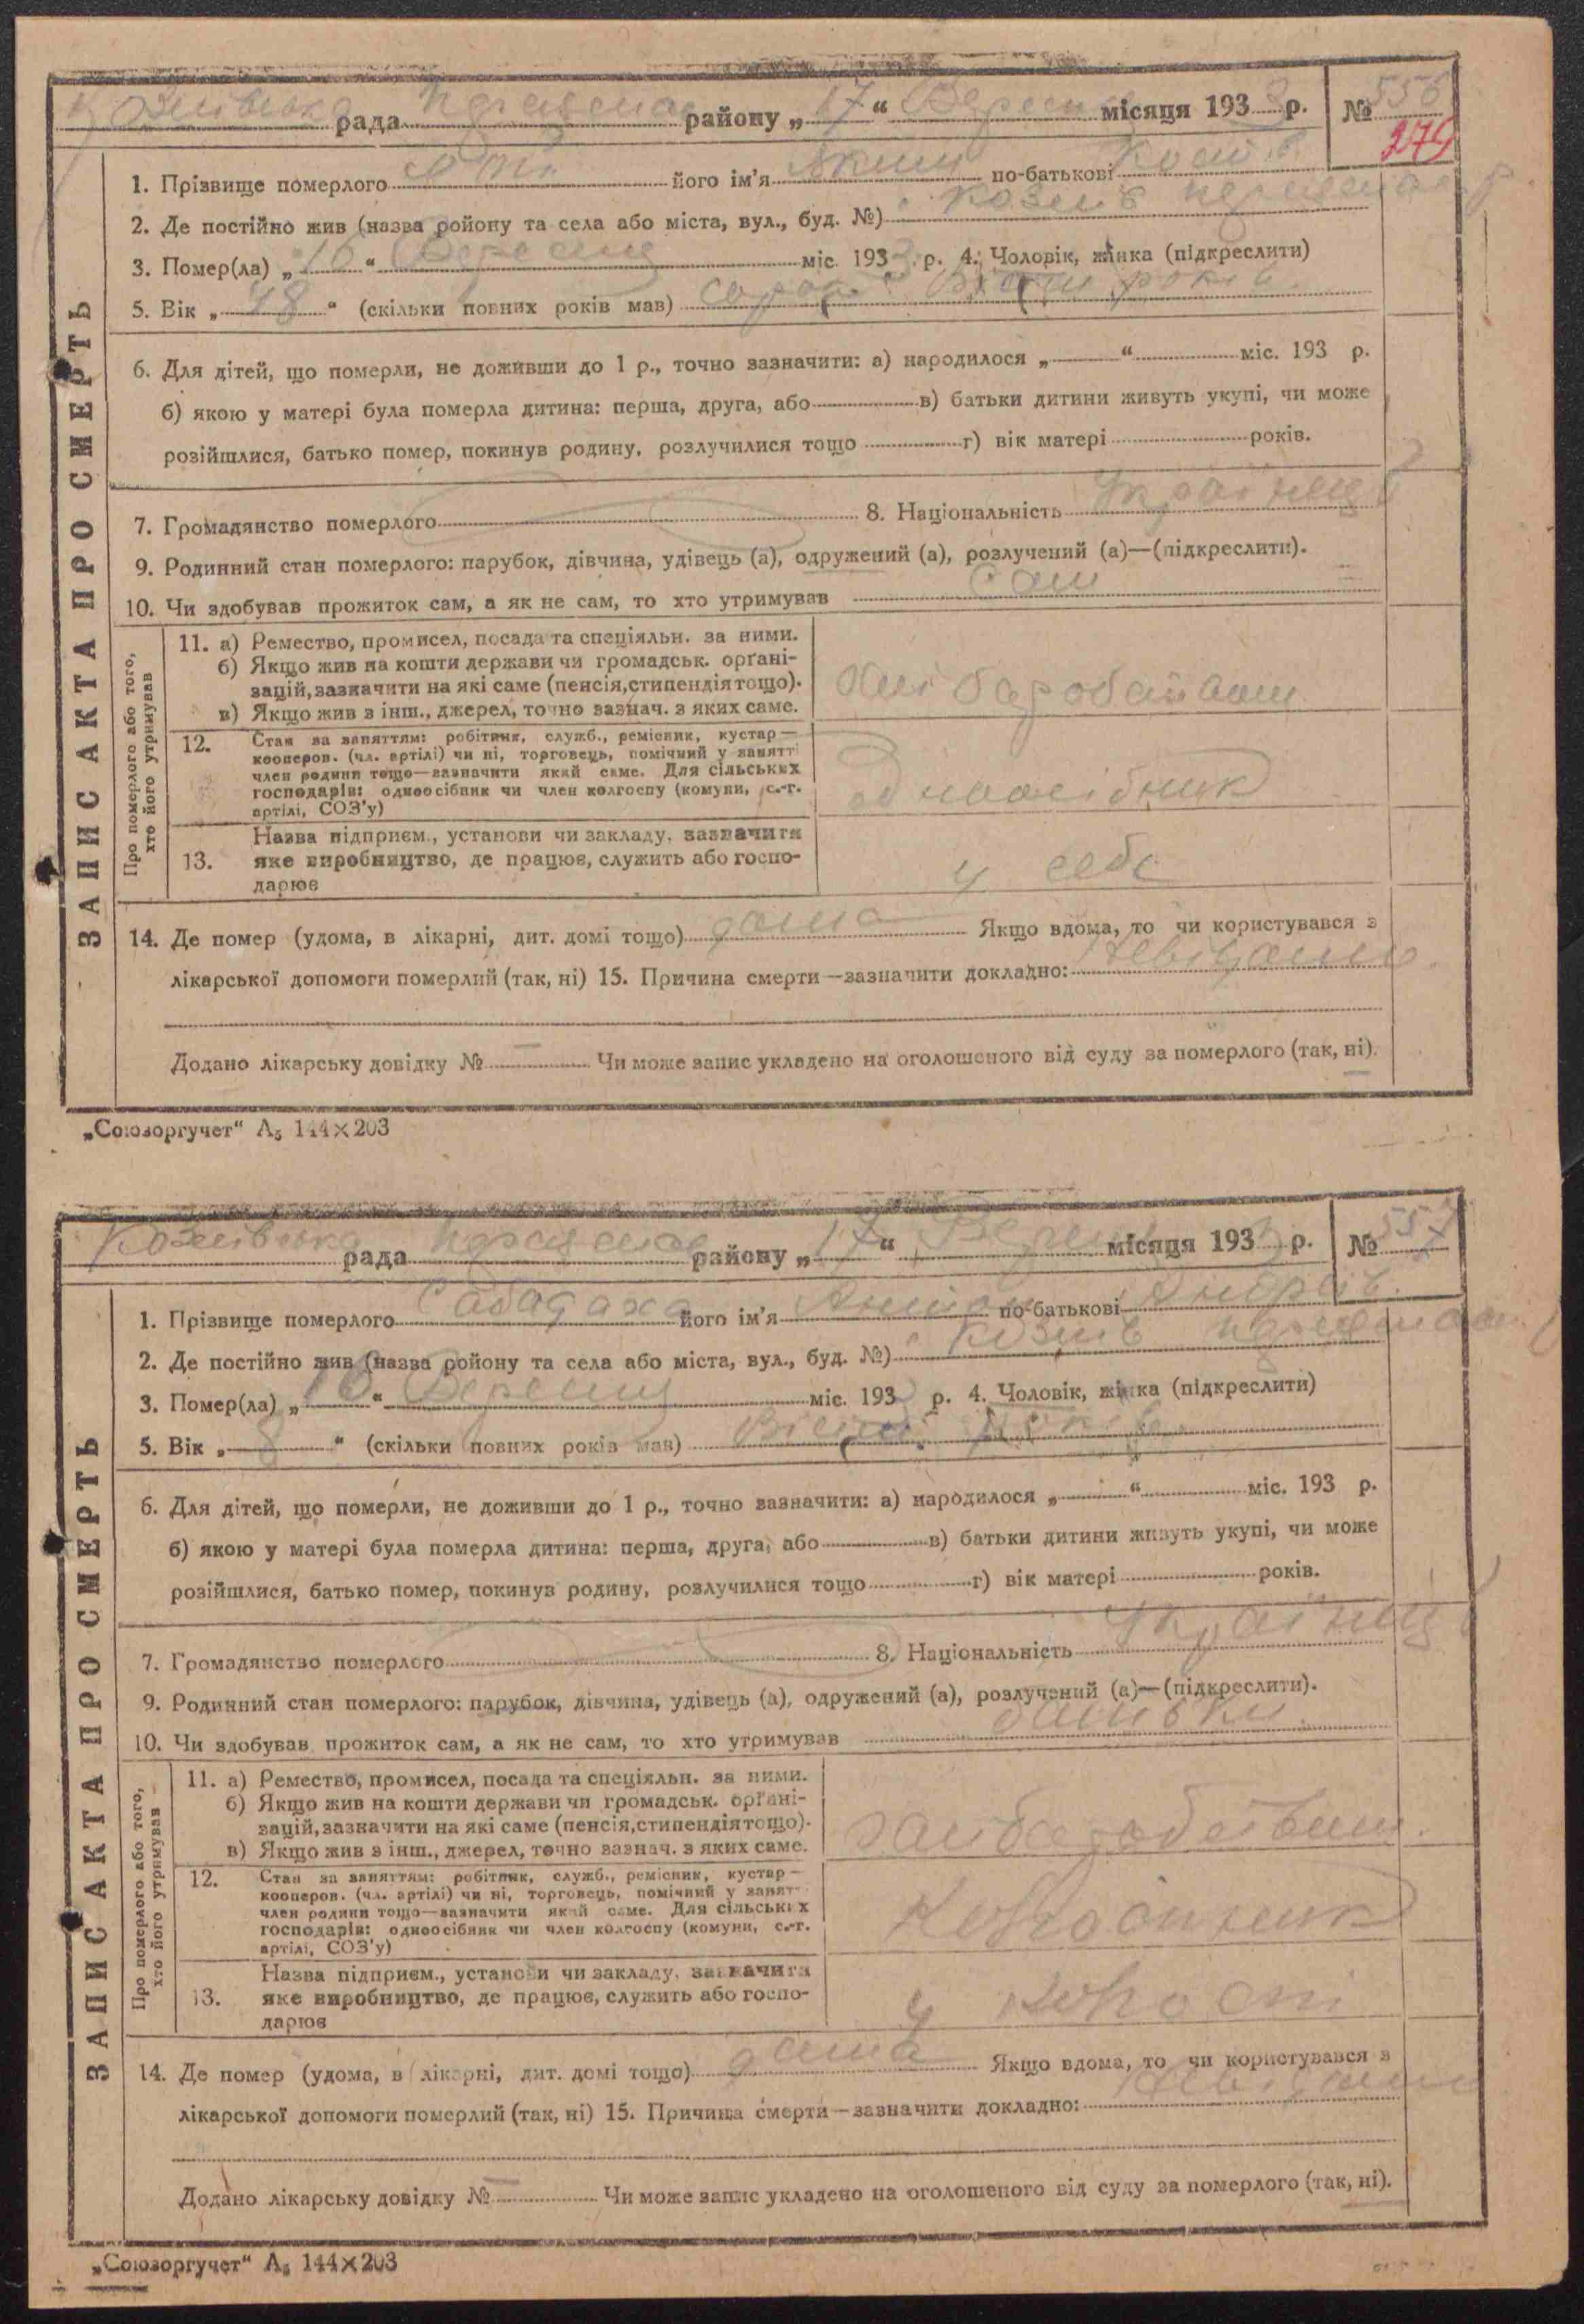 рада района „ 17 “ Вересня місяця 1933 р. № 556
279
1. Прізвище померлого його ім’я Яким по-батькові
2. Де постійно жив (назва ройону та села або міста, вул., буд. №) с. Козлів
3. Помер(ла) „ 16 “ Вересня міс. 1933 р. 4. Чоловік, жінка (підкреслити)
5. Вік „ 48 “ (скільки повних років мав) сорок вісім років.
6. Для дітей, що померли, не доживши до 1 р., точно зазначити: а) народилося „ “ міс. 193 р.
б) якою у матері була померла дитина: перша, друга, або в) батьки дитини живуть укупі, чи може
розійшлися, батько помер, покинув родину, розлучилися тощо г) вік матері років.
7. Громадянство померлого 8. Національність Українец
9. Родинний стан померлого: парубок, дівчина, удівець (а), одружений (а), розлучений (а)—(підкреслити).
10. Чи здобував прожиток сам, а як не сам, то хто утримував сам
ЗАПИС АКТА ПРО СМЕРТЬ
Про померлого або того, хто його утримував
11. а) Ремество, промисел, посада та спеціяльн. за ними.
б) Якщо жив на кошти держави чи громадськ. орґані-
зацій, зазначити на які саме (пенсія, стипендія тощо).
в) Якщо жив з інш., джерел, точно зазнач. з яких саме.
12. Стан за заняттям: робітник, служб., ремісник, кустар—
кооперов. (чл. артілі) чи ні, торговець, помічний у занятті
член родини тощо—зазначити який саме. Для сільських
господарів: одноосібник чи член колгоспу (комуни, с.-г.
артілі, СОЗ’у)
одноосібник
13. Назва підприєм., установи чи закладу, зазначити
яке виробництво, де працює, служить або госпо-
дарює
у себе
14. Де помер (удома, в лікарні, дит. домі тощо) дома Якщо вдома, то чи користувався з
лікарської допомоги померлий (так, ні) 15. Причина смерти—зазначити докладно: Невідомо.
Додано лікарську довідку № — Чи може запис укладено на оголошеного від суду за померлого (так, ні).
„Союзоргучет“ А5 144×203
рада району „ 17 “ місяця 193 р. № 557
1. Прізвище померлого Сабадаха його ім’я по-батькові Андрієв.
2. Де постійно жив (назва ройону та села або міста, вул., буд. №) с. Козлів
3. Помер(ла) „ 16 “ Вересня міс. 193 р. 4. Чоловік, жінка (підкреслити)
5. Вік „ 8 “ (скільки повних років мав) Вісім років.
6. Для дітей, що померли, не доживши до 1 р., точно зазначити: а) народилося „ “ міс. 193 р.
б) якою у матері була померла дитина: перша, друга, або в) батьки дитини живуть укупі, чи може
розійшлися, батько помер, покинув родину, розлучилися тощо г) вік матері років.
7. Громадянство померлого 8. Національність Українец
9. Родинний стан померлого: парубок, дівчина, удівець (а), одружений (а), розлучений (а)—(підкреслити).
10. Чи здобував прожиток сам, а як не сам, то хто утримував батьки.
ЗАПИС АКТА ПРО СМЕРТЬ
Про померлого або того, хто його утримував
11. а) Ремество, промисел, посада та спеціяльн. за ними.
б) Якщо жив на кошти держави чи громадськ. орґані-
зацій, зазначити на які саме (пенсія, стипендія тощо).
в) Якщо жив з інш., джерел, точно зазнач. з яких саме.
12. Стан за заняттям: робітник, служб., ремісник, кустар—
кооперов. (чл. артілі) чи ні, торговець, помічний у занят-
член родини тощо—зазначити який саме. Для сільських
господарів: одноосібник чи член колгоспу (комуни, с.-г.
артілі, СОЗ’у)
13. Назва підприєм., установи чи закладу, зазначити
яке виробництво, де працює, служить або госпо-
дарює
у колгоспі
14. Де помер (удома, в лікарні, дит. домі тощо) дома Якщо вдома, то чи користувався з
лікарської допомоги померлий (так, ні) 15. Причина смерти—зазначити докладно: Невідомо
Додано лікарську довідку № — Чи може запис укладено на оголошеного від суду за померлого (так, ні).
„Союзоргучет“ А5 144×203